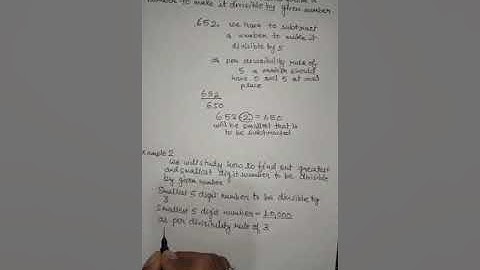 number to make it divisible by given number
652. we have to subtract
a number to make it
divisible by 5
as per divisibility rule of
5 a number should
have 0 and 5 at unit
place
652
650
652 (2) = 650
will be smallest that is
to be subtracted
Example 2
We will study how to find out greatest
and smallest digit number to be divisible
by given number
Smallest 5 digit number to be divisible by
3
Smallest 5 digit number = 10,000
as per divisibility rule of 3